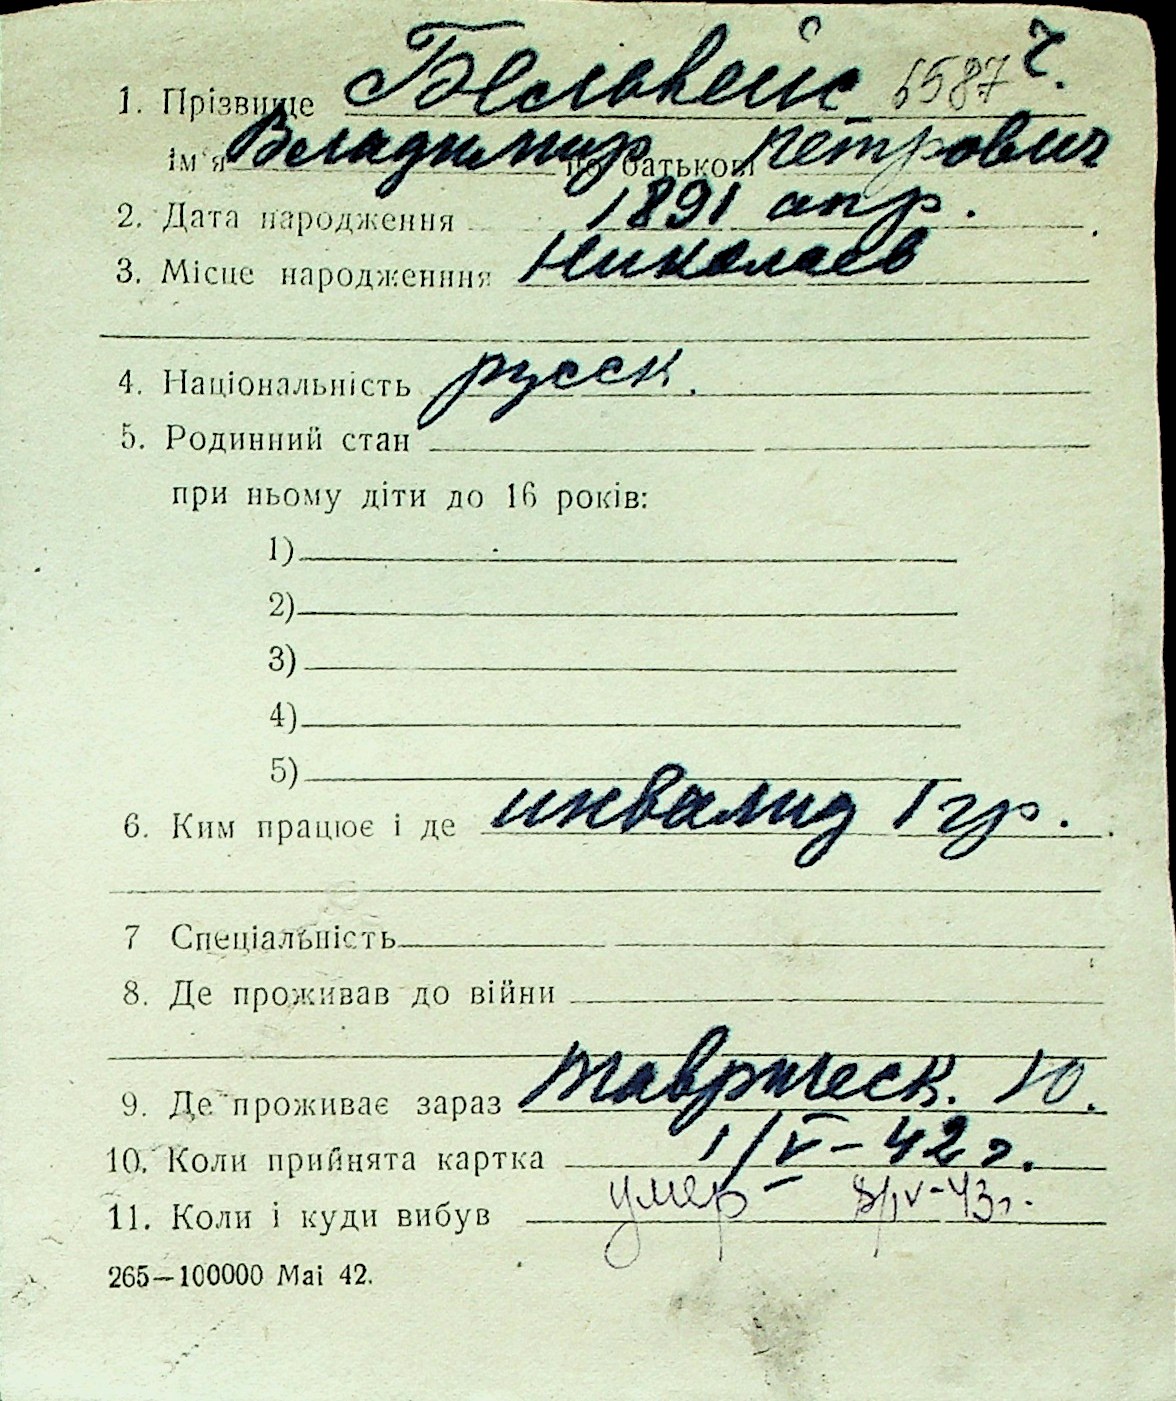 1. Прізвище Бельвейс 6587 ч.
ім'я Владимир по батькові Петрович
2. Дата народження 1891 апр.
3. Місце народженння Николаев
4. Національність русск.
5. Родинний стан
при ньому діти до 16 років:
1)
2)
3)
4)
5)
6. Ким працює і де инвалид I гр.
7 Спеціальність
8. Де проживав до війни
9. Де проживає зараз Тавричеcк. 10.
10. Коли прийнята картка 1/V-42 г.
11. Коли і куди вибув умер 8/IV-43г.
265—100000 Mai 42.